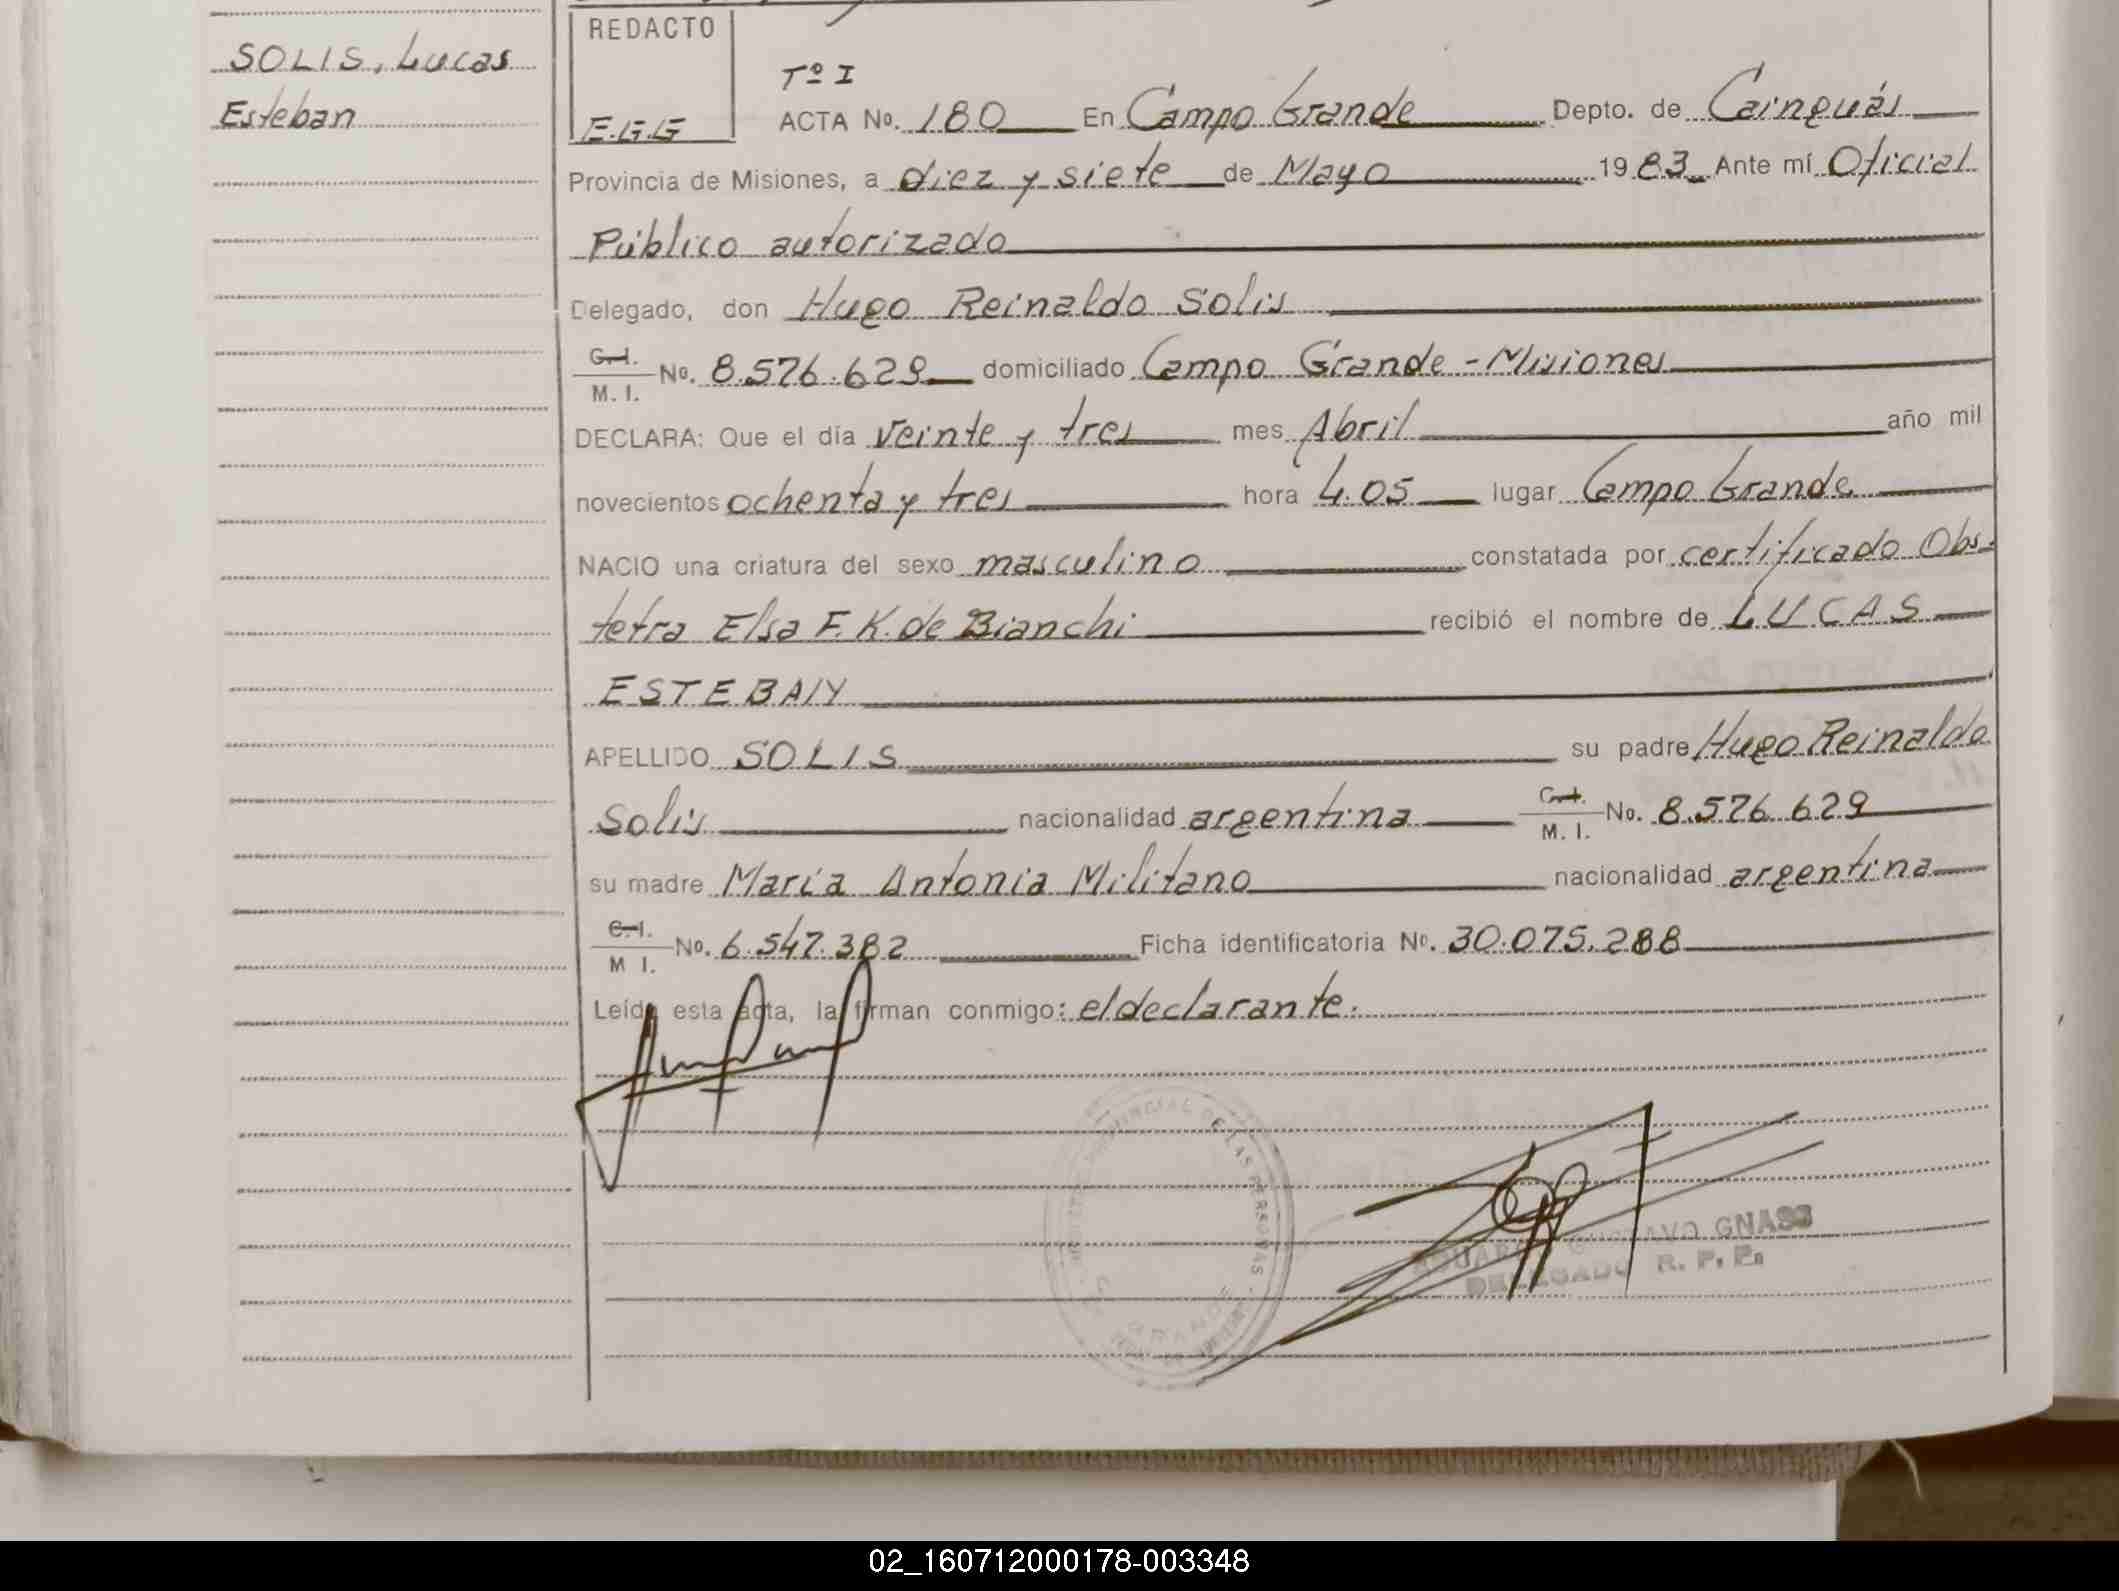 REDACTO
SOLIS, Lucas
Esteban
Tº I
E.G.G ACTA No. 180 En Campo Grande Depto. de Cainguás
Provincia de Misiones, a diez y siete de Mayo 1983 Ante mí Oficial
Público autorizado
Delegado, don Hugo Reinaldo Solis
C.I. M. I. No. 8.576.629 domiciliado Campo Grande - Misiones
DECLARA: Que el día veinte y tres mes Abril año mil
novecientos ochenta y tres hora 4.05 lugar Campo Grande
NACIO una criatura del sexo masculino constatada por certificado Obs-
tetra Elsa F. K. de Bianchi recibió el nombre de LUCAS
ESTEBAN
APELLIDO SOLIS su padre Hugo Reinaldo
Solis nacionalidad argentina C.I. M. I. No. 8.576.629
su madre María Antonia Militano nacionalidad argentina
C.I. M I. No. 6.547.382 Ficha identificatoria Nº. 30.075.288
Leída esta acta, la firman conmigo: el declarante.
PROVINCIAL DE LAS PERSONAS
GRANDE
EDUARDO GUSTAVO GNASS
DELEGADO R. P. P.
02_160712000178-003348